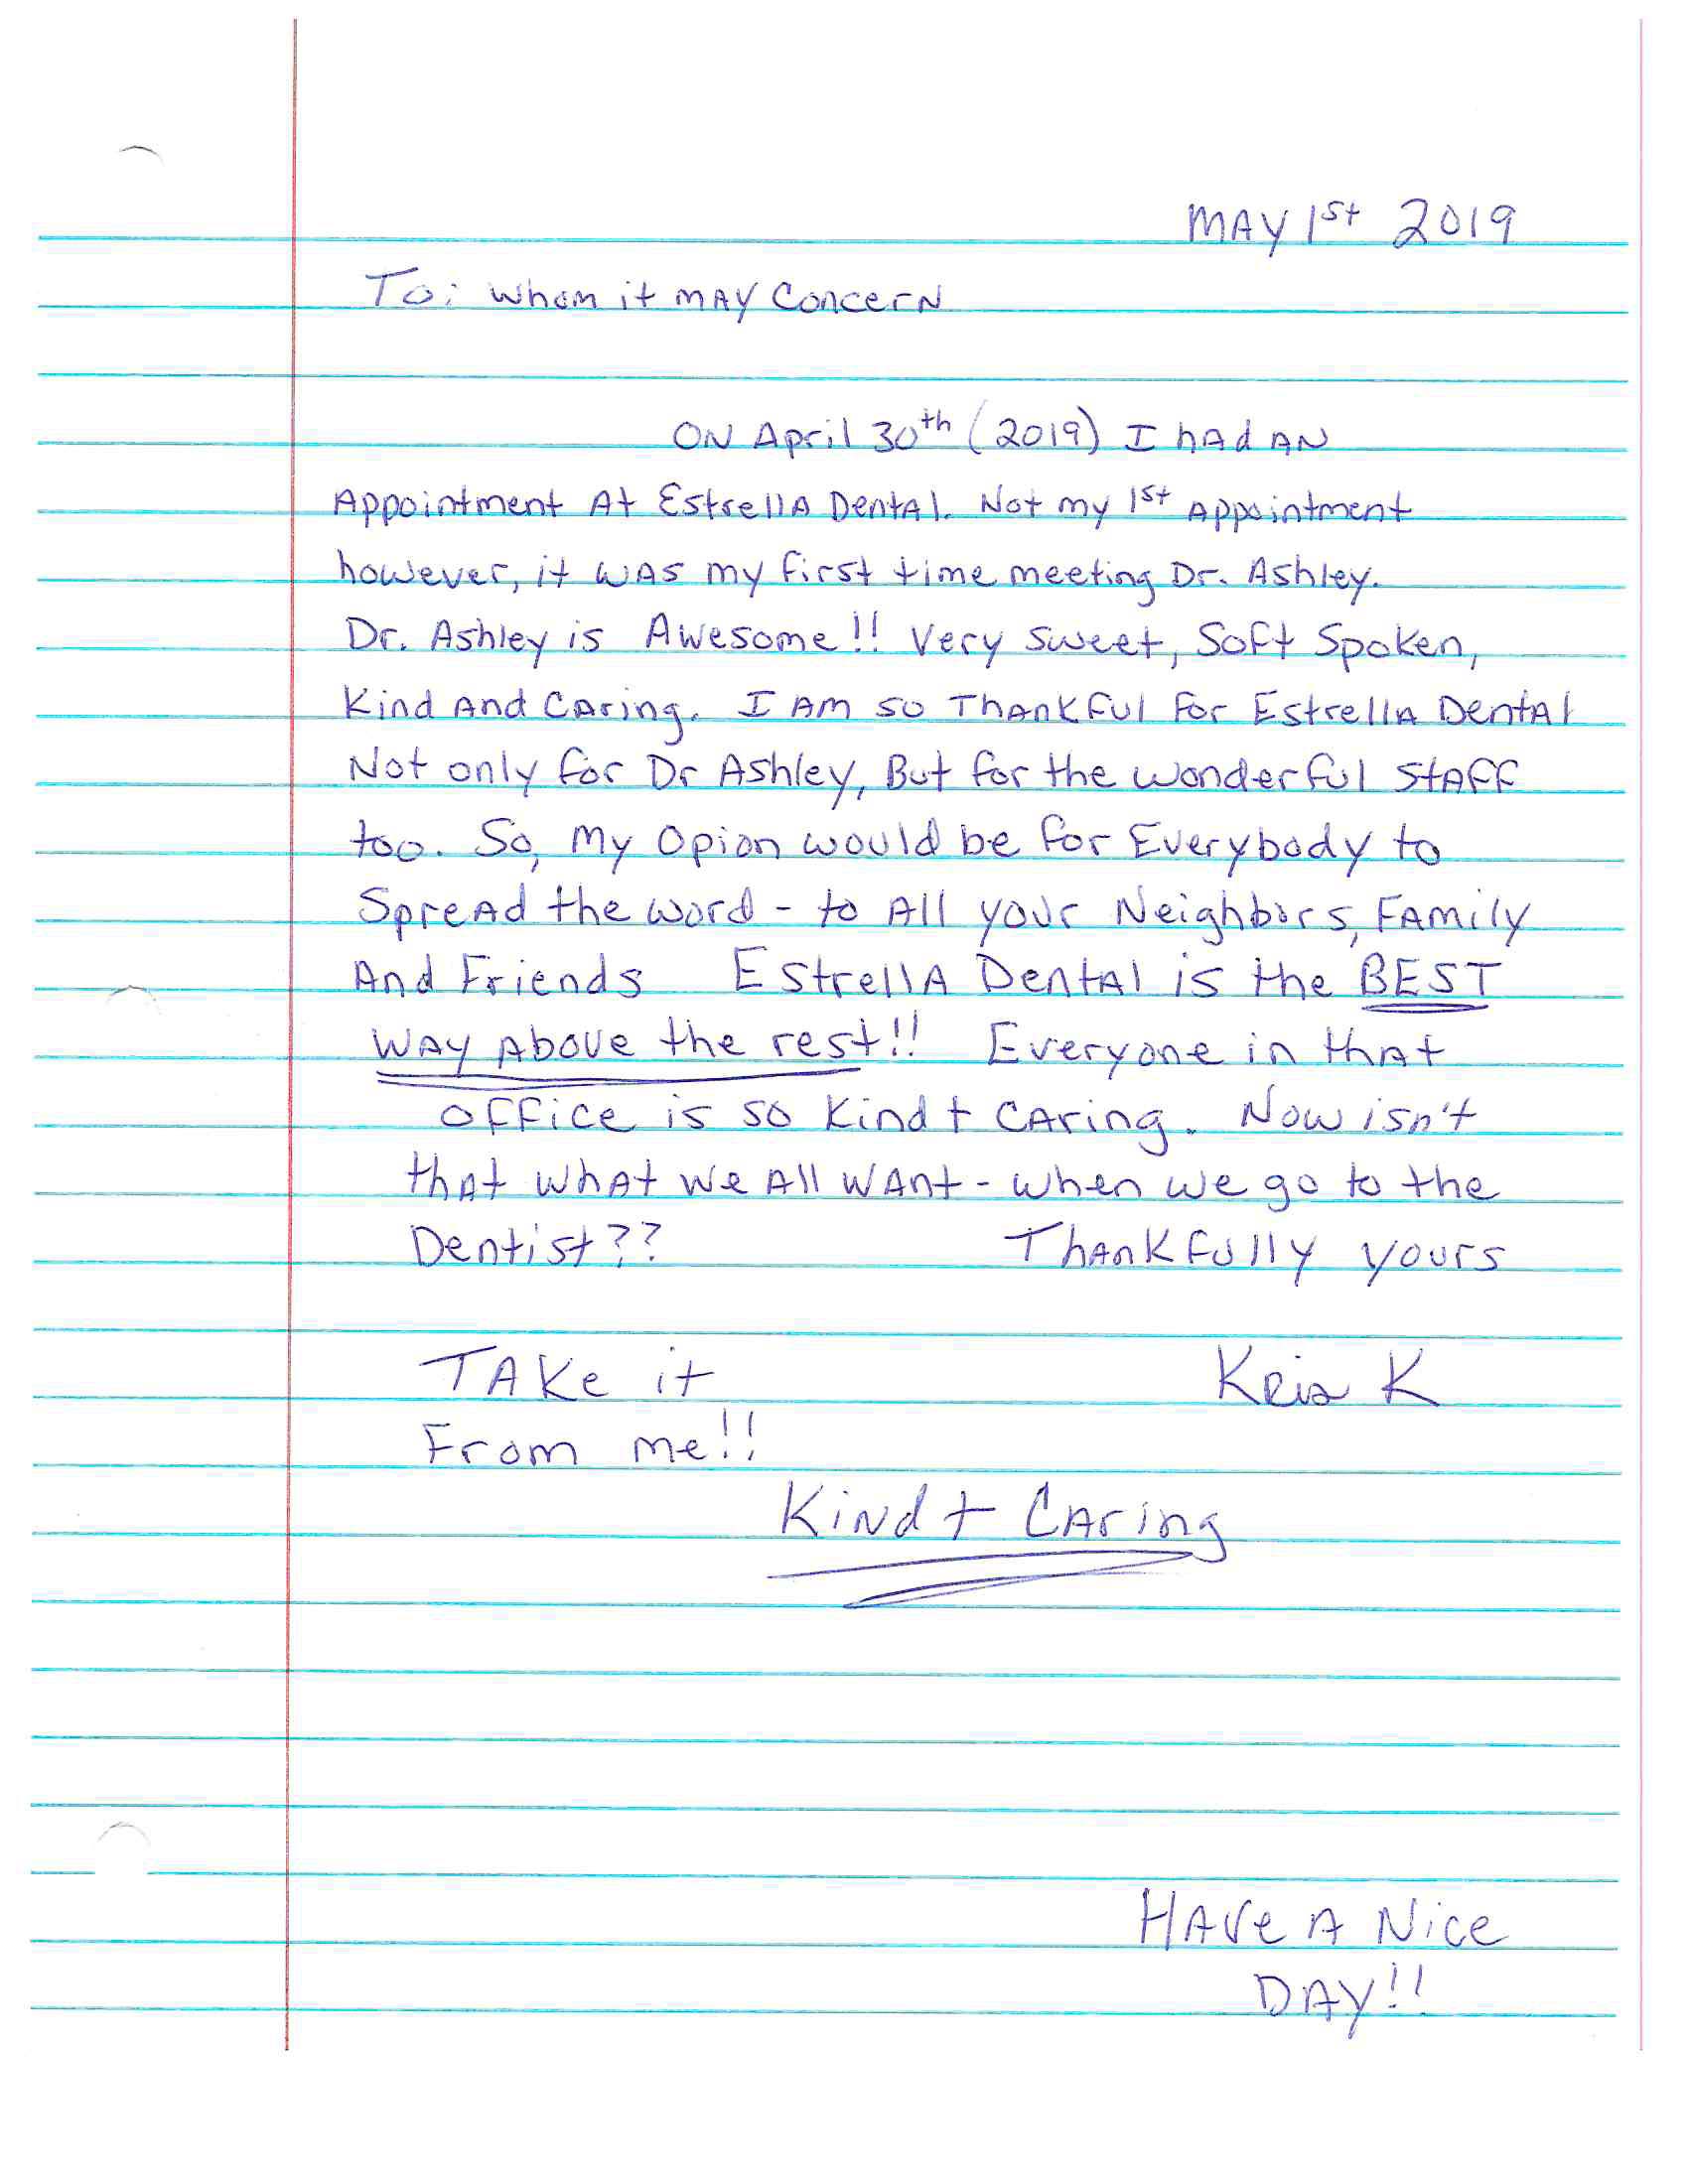 MAY 1st 2019
To: whom it mAy ConcerN
ON April 30th (2019) I hAd AN
Appointment At EstrellA DentAl. Not my 1st Appointment
however, it wAs my first time meeting Dr. Ashley.
Dr. Ashley is Awesome!! Very sweet, Soft Spoken,
Kind And CAring. I Am so ThAnkful For EstrellA DentAl
Not only for Dr Ashley, But for the wonderful StAff
too. So, my Opion would be for Everybody to
SpreAd the word - to All your Neighbors, FAmily
And Friends EstrellA DentAl is the BEST
WAy Above the rest!! Everyone in thAt
office is so Kind + CAring. Now isn't
thAt whAt we All wAnt - when we go to the
Dentist??
ThAnkfully yours
TAKe it
From me!!
Kris K
KiNd + CAring
HAve A Nice
DAY!!